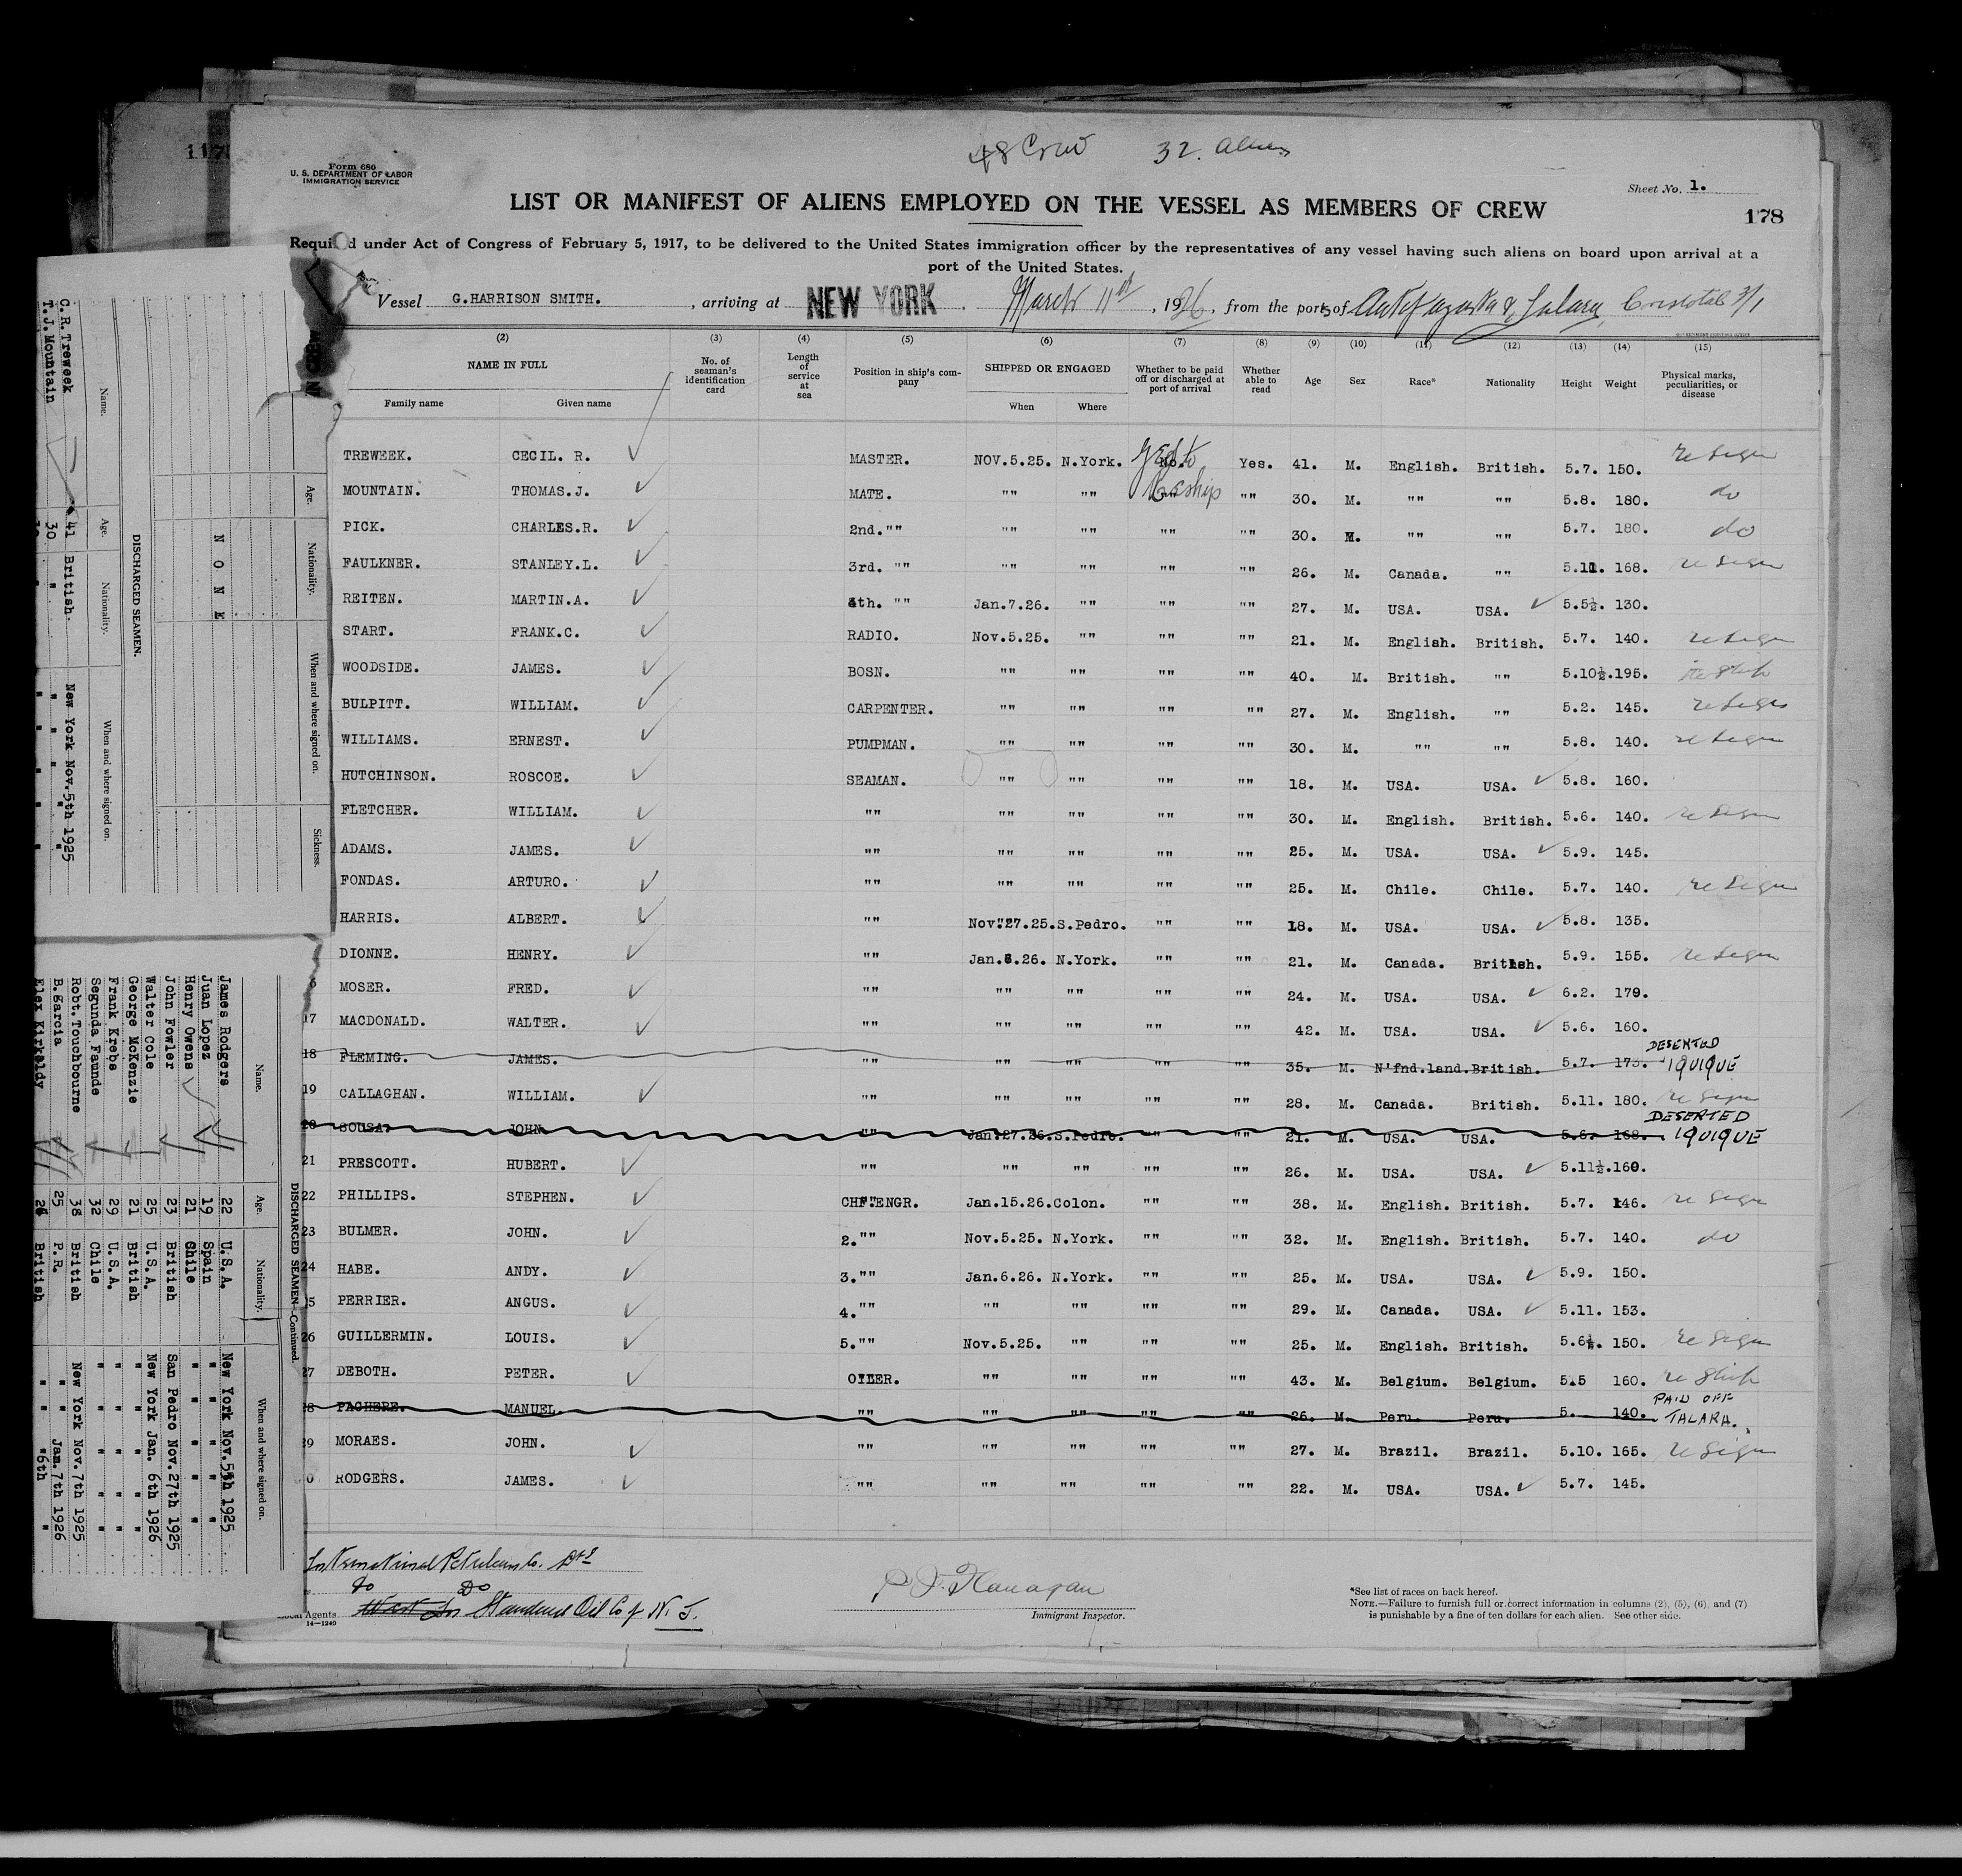 117
48 Crew 32. Aliens
Form 680
U. S. DEPARTMENT OF LABOR
IMMIGRATION SERVICE
Sheet No. 1.
LIST OR MANIFEST OF ALIENS EMPLOYED ON THE VESSEL AS MEMBERS OF CREW
178
Required under Act of Congress of February 5, 1917, to be delivered to the United States immigration officer by the representatives of any vessel having such aliens on board upon arrival at a
port of the United States.
Vessel G.HARRISON SMITH. , arriving at NEW YORK . March 11th , 1926, from the ports of Antofagasta & Talara Cristobal 3/1
(2) (3) (4) (5) (6) (7) (8) (9) (10) (11) (12) (13) (14) (15)
NAME IN FULL No. of seaman's identification card Length of service at sea Position in ship's company SHIPPED OR ENGAGED Whether to be paid off or discharged at port of arrival Whether able to read Age Sex Race* Nationality Height Weight Physical marks, peculiarities, or disease
Family name Given name When Where
TREWEEK. CECIL. R. MASTER. NOV.5.25. N.York. No. Yes. 41. M. English. British. 5.7. 150. re Sign
MOUNTAIN. THOMAS.J. MATE. "" "" reship "" 30. M. "" "" 5.8. 180. do
PICK. CHARLES.R. 2nd."" "" "" "" "" 30. M. "" "" 5.7. 180. do
FAULKNER. STANLEY.L. 3rd. "" "" "" "" "" 26. M. Canada. "" 5.11. 168. re Sign
REITEN. MARTIN.A. 4th. "" Jan.7.26. "" "" "" 27. M. USA. USA. 5.5½. 130.
START. FRANK.C. RADIO. Nov.5.25. "" "" "" 21. M. English. British. 5.7. 140. re Sign
WOODSIDE. JAMES. BOSN. "" "" "" "" 40. M. British. "" 5.10½.195. re Ship
BULPITT. WILLIAM. CARPENTER. "" "" "" "" 27. M. English. "" 5.2. 145. re Sign
WILLIAMS. ERNEST. PUMPMAN. "" "" "" "" 30. M. "" "" 5.8. 140. re Sign
HUTCHINSON. ROSCOE. SEAMAN. "" "" "" "" 18. M. USA. USA. 5.8. 160.
FLETCHER. WILLIAM. "" "" "" "" "" 30. M. English. British. 5.6. 140. re Sign
ADAMS. JAMES. "" "" "" "" "" 25. M. USA. USA. 5.9. 145.
FONDAS. ARTURO. "" "" "" "" "" 25. M. Chile. Chile. 5.7. 140. re Sign
HARRIS. ALBERT. "" Nov.27.25.S.Pedro. "" "" 18. M. USA. USA. 5.8. 135.
DIONNE. HENRY. "" Jan.6.26. N.York. "" "" 21. M. Canada. British. 5.9. 155. re Sign
6 MOSER. FRED. "" "" "" "" "" 24. M. USA. USA. 6.2. 179.
17 MACDONALD. WALTER. "" "" "" "" "" 42. M. USA. USA. 5.6. 160.
18 FLEMING. JAMES. "" "" "" "" "" 35. M. N'fnd.land.British. 5.7. 173. DESERTED IQUIQUE
19 CALLAGHAN. WILLIAM. "" "" "" "" "" 28. M. Canada. British. 5.11. 180. re Sign
20 SOUSA. JOHN. "" Jan.27.26.S.Pedro. "" "" 21. M. USA. USA. 5.6. 168. DESERTED IQUIQUE
21 PRESCOTT. HUBERT. "" "" "" "" "" 26. M. USA. USA. 5.11½.160.
22 PHILLIPS. STEPHEN. CHF.ENGR. Jan.15.26.Colon. "" "" 38. M. English. British. 5.7. 146. re Sign
23 BULMER. JOHN. 2."" Nov.5.25. N.York. "" "" 32. M. English. British. 5.7. 140. do
24 HABE. ANDY. 3."" Jan.6.26. N.York. "" "" 25. M. USA. USA. 5.9. 150.
5 PERRIER. ANGUS. 4."" "" "" "" "" 29. M. Canada. USA. 5.11. 153.
26 GUILLERMIN. LOUIS. 5."" Nov.5.25. "" "" "" 25. M. English. British. 5.6½. 150. re Sign
27 DEBOTH. PETER. OILER. "" "" "" "" 43. M. Belgium. Belgium. 5.5 160. re Ship
8 PACHERE. MANUEL. "" "" "" "" "" 26. M. Peru. Peru. 5. 140. PAID OFF TALARA.
9 MORAES. JOHN. "" "" "" "" "" 27. M. Brazil. Brazil. 5.10. 165. re Sign
0 RODGERS. JAMES. "" "" "" "" "" 22. M. USA. USA. 5.7. 145.
International Petroleum Co. Ltd
do do
Standard Oil Co of N. J.
Local Agents
14—1240
P J Flanagan
Immigrant Inspector.
*See list of races on back hereof.
NOTE.—Failure to furnish full or correct information in columns (2), (5), (6), and (7)
is punishable by a fine of ten dollars for each alien. See other side.
Age. Nationality. When and where signed on. Sickness.
N O N E
DISCHARGED SEAMEN.
Name. Age. Nationality. When and where signed on.
C.R.Treweek 41 British. New York Nov.5th 1925
T.J.Mountain 30 " " " " "
DISCHARGED SEAMEN—Continued.
Name. Age. Nationality. When and where signed on.
James Rodgers 22 U.S.A. New York Nov.5th 1925
Juan Lopez 19 Spain " " " "
Henry Owens 21 Chile " " " "
John Fowler 23 British San Pedro Nov.27th 1925
Walter Cole 25 U.S.A. New York Jan. 6th 1926
George McKenzie 21 British " " " "
Frank Krebs 29 U.S.A. " " " "
Segunda Faunde 32 Chile " " " "
Robt.Touchbourne 38 British New York Nov.7th 1925
B.garcia 25 P.R. " " Jan.7th 1926
Elex Kirkaldy British " " "6th "